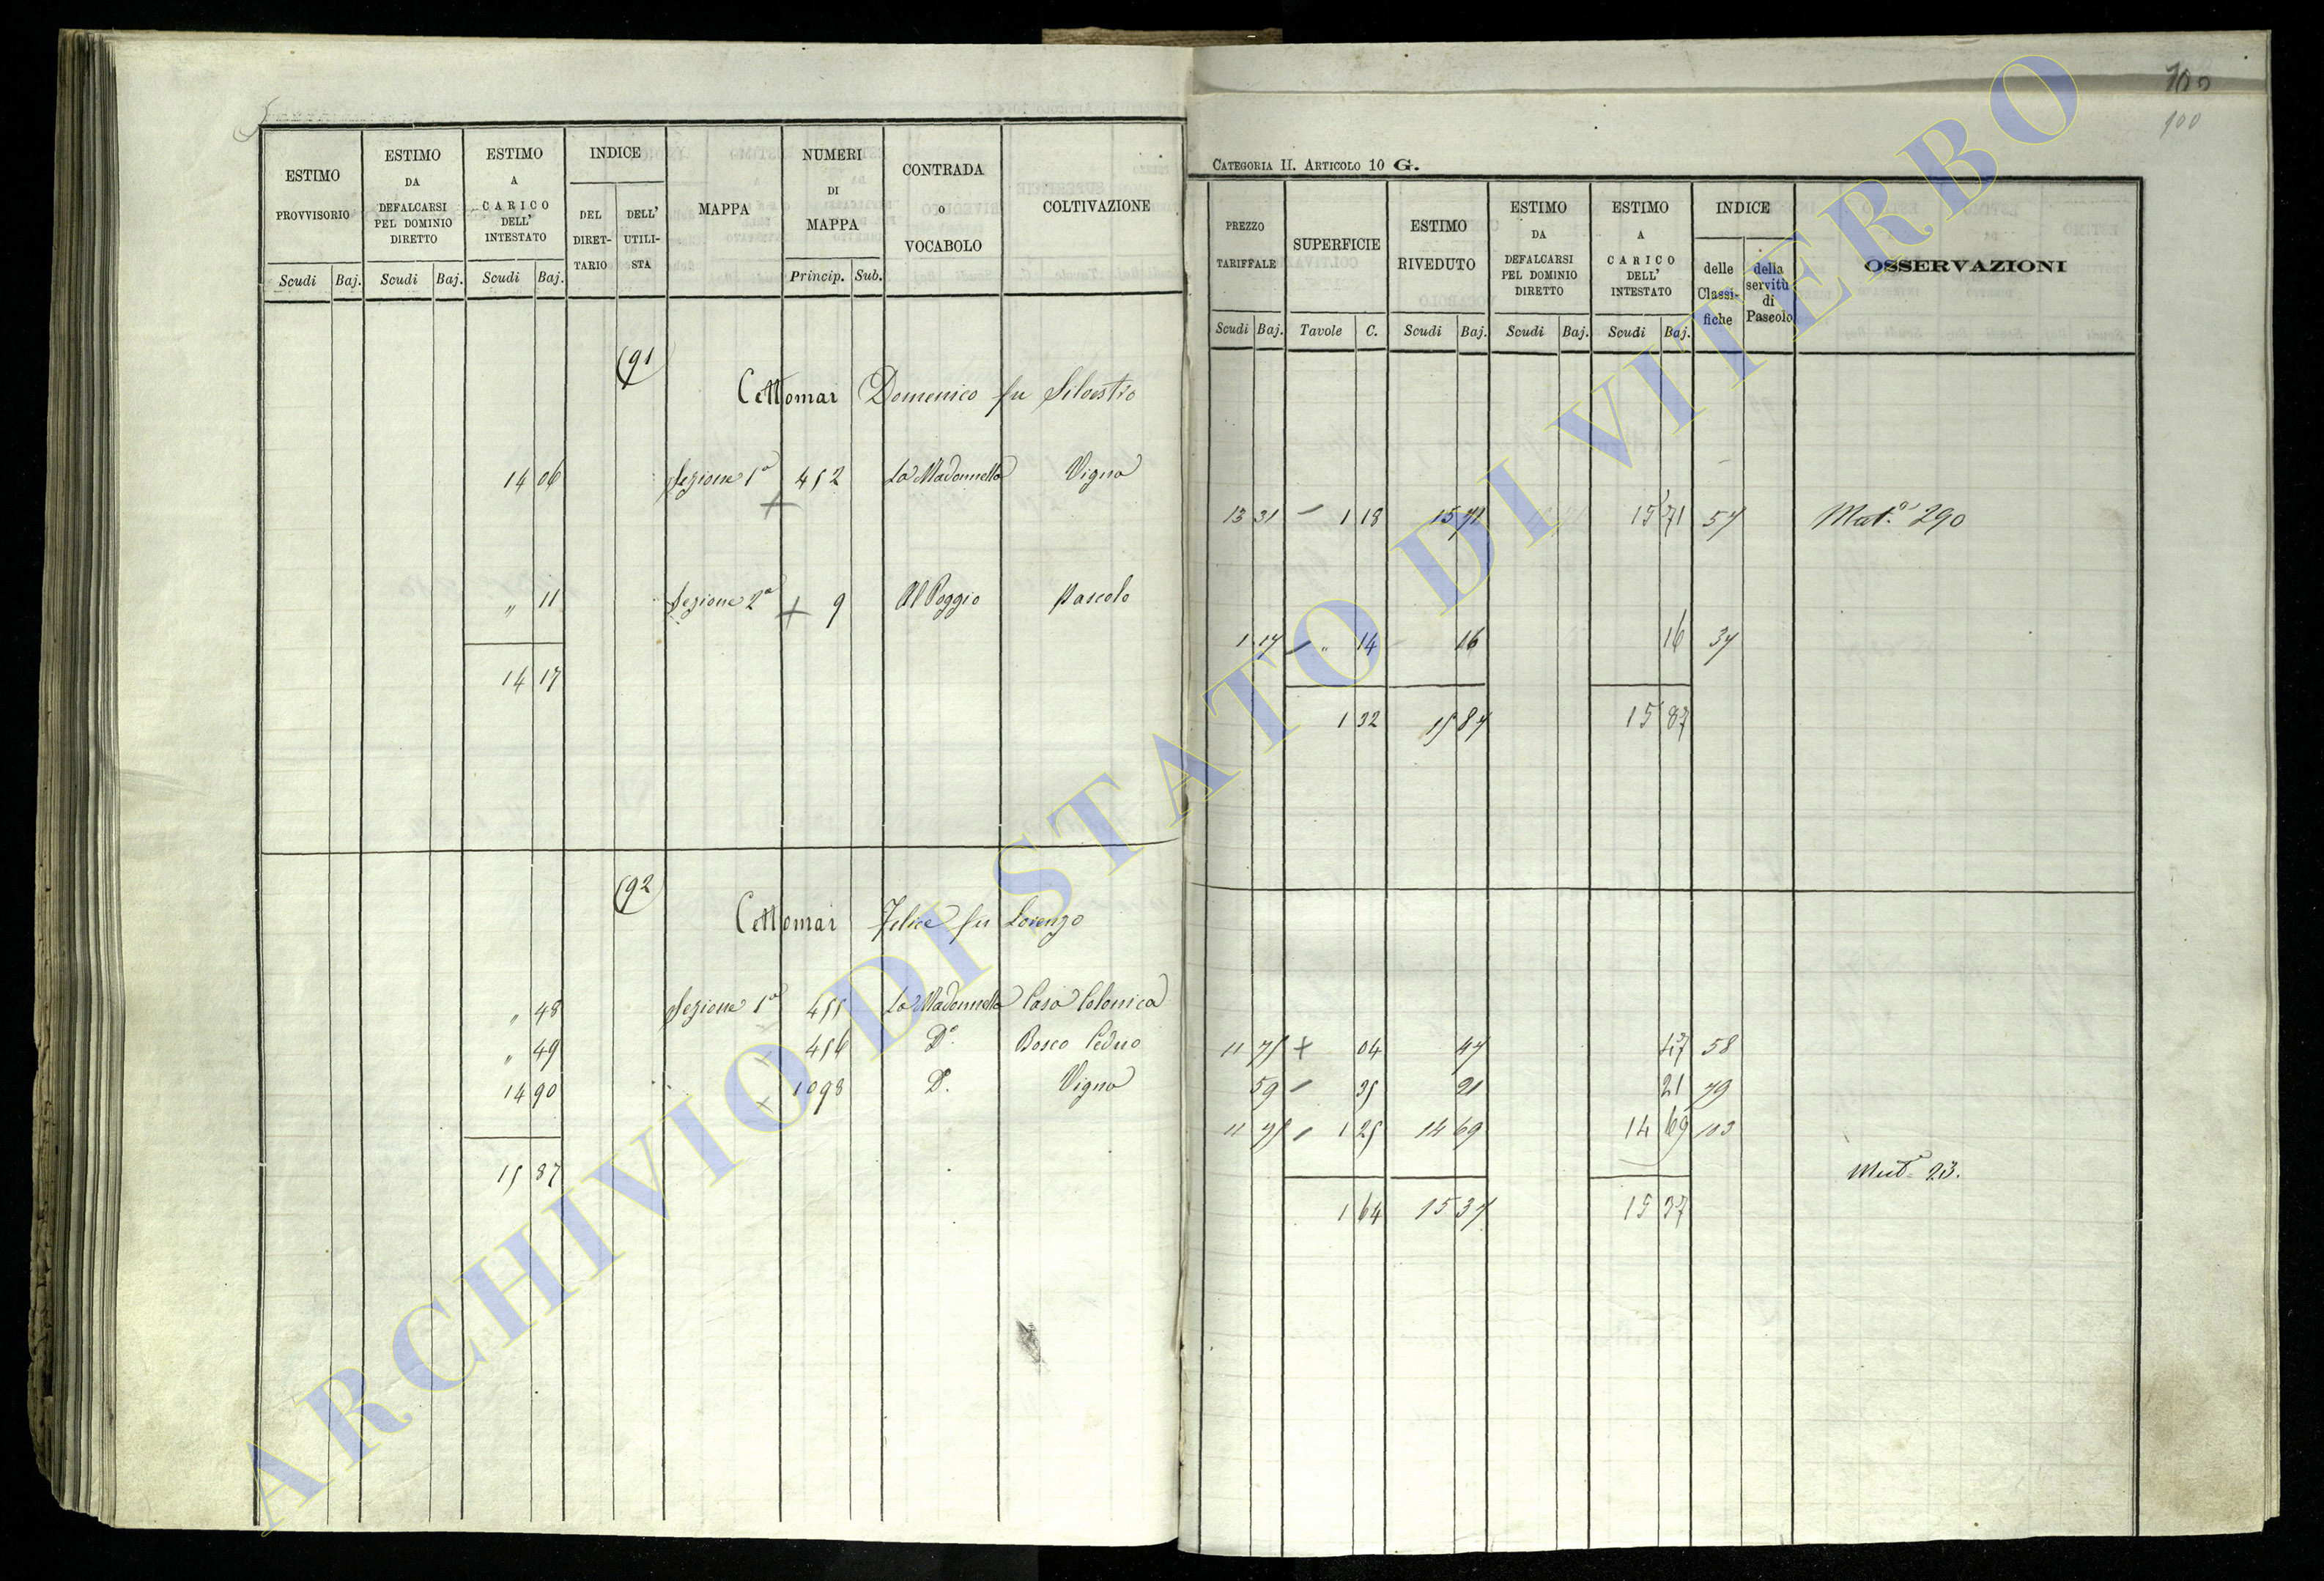 ESTIMO PROVVISORIO
Scudi Baj.
ESTIMO DA DEFALCARSI PEL DOMINIO DIRETTO
Scudi Baj.
ESTIMO A CARICO DELL' INTESTATO
Scudi Baj.
INDICE
DEL DIRET-TARIO
DELL' UTILI-STA
MAPPA
NUMERI DI MAPPA
Princip. Sub.
CONTRADA o VOCABOLO
COLTIVAZIONE
91
Cettomai Domenico fu Silvestro
14 06 Sezione 1a 452 La Madonnella Vigna
„ 11 Sezione 2a 9 Al Poggio Pascolo
14 17
92
Cettomai Felice fu Lorenzo
„ 48 Sezione 1a 455 La Madonnella Casa Colonica
„ 49 456 Do. Bosco Ceduo
14 90 1098 D. Vigna
15 87
100
100
CATEGORIA II. ARTICOLO 10 G.
PREZZO TARIFFALE
Scudi Baj.
SUPERFICIE
Tavole C.
ESTIMO RIVEDUTO
Scudi Baj.
ESTIMO DA DEFALCARSI PEL DOMINIO DIRETTO
Scudi Baj.
ESTIMO A CARICO DELL' INTESTATO
Scudi Baj.
INDICE
delle Classi-fiche
della servitù di Pascolo
OSSERVAZIONI
13 31 1 18 15 71 15 71 57 Mut.a 290
1 17 „ 14 16 16 37
1 32 15 87 15 87
11 75 04 47 47 58
59 35 21 21 79
11 75 1 25 14 69 14 69 103
Mut.a 23.
1 64 15 37 15 37
ARCHIVIO DI STATO DI VITERBO